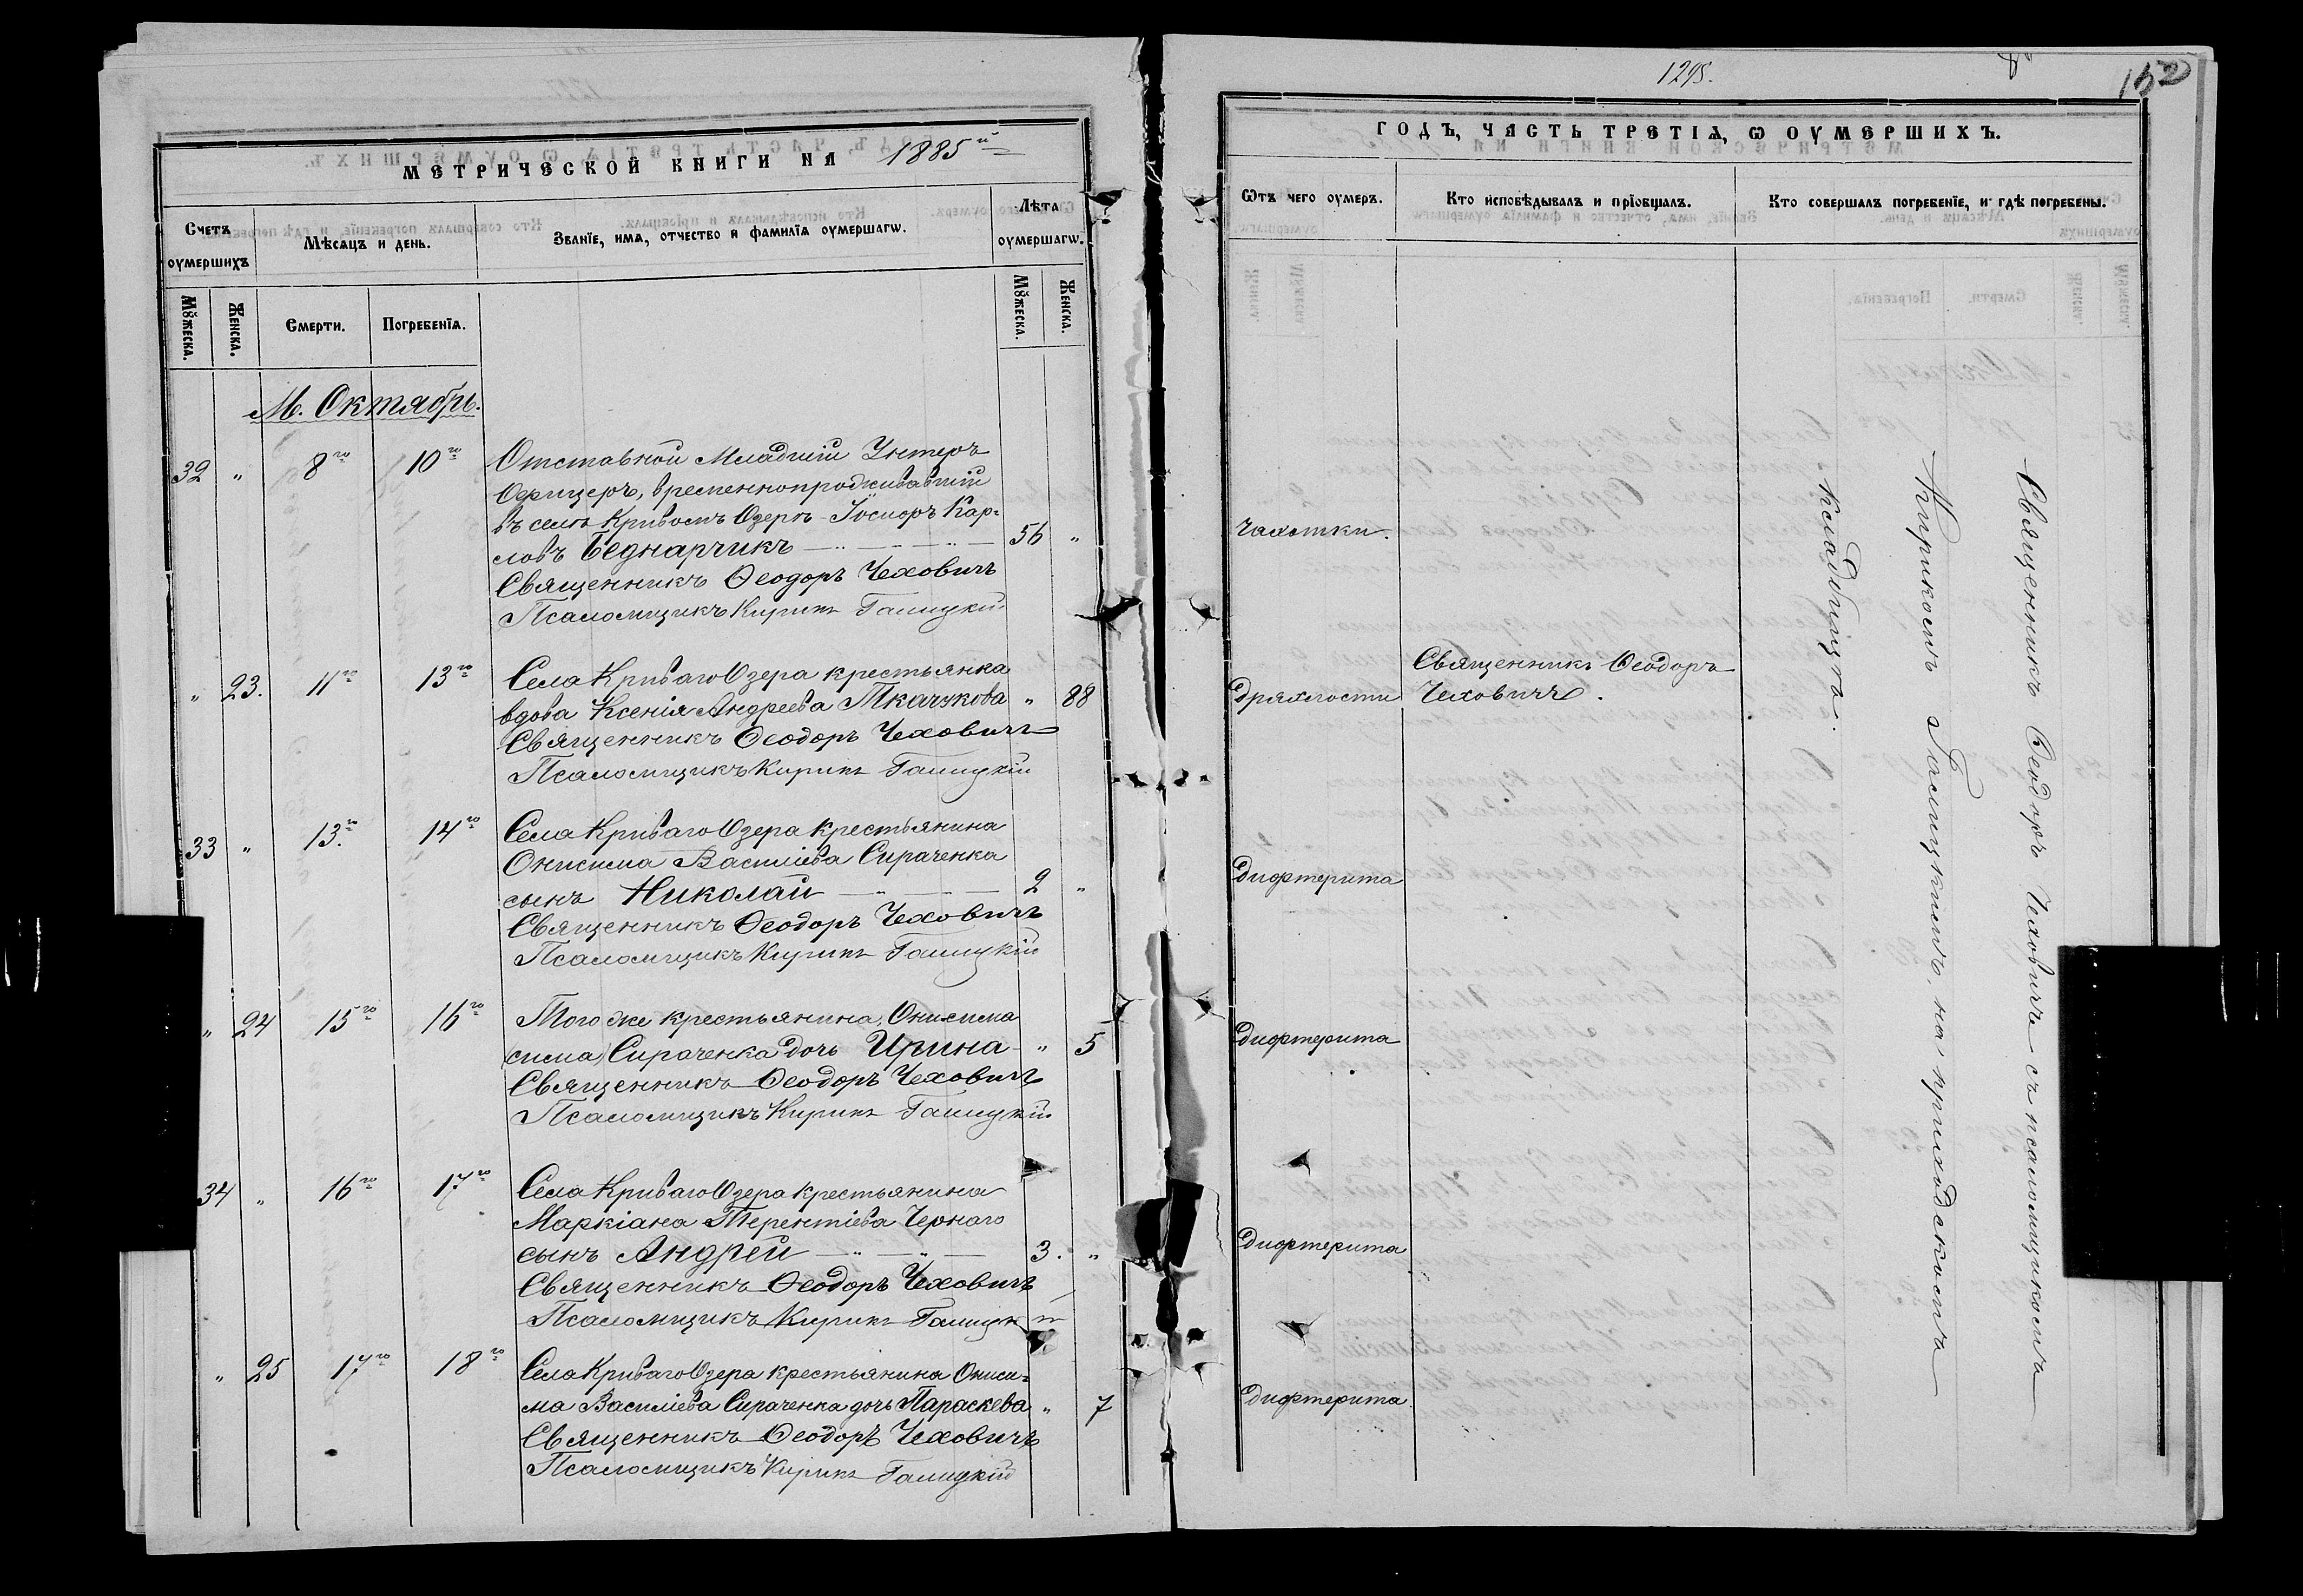 1295.
152
МЕТРИЧЕСКОЙ КНИГИ НА 1885й
ГОДЪ, ЧАСТЬ ТРЕТІЯ, Ѡ ОУМЕРШИХЪ.
Счетъ оумершихъ
Мѣсяцъ и день.
Званїе, имя, отчество и фамилїя оумершагѡ.
Лѣта оумершагѡ.
Ѿтъ чего оумеръ.
Кто исповѣдывалъ и прїобщалъ.
Кто совершалъ погребенїе, и гдѣ погребены.
Мꙋжеска.
Женска.
Смерти.
Погребенїя.
Мꙋжеска.
Женска.
М. Октябрь.
32 " 8го 10го Отставной Младшій Унтеръ
Офицеръ, временнопроживавшій
въ селѣ Кривомъ Озерѣ - Іосифъ Кар=
ловъ Беднарчикъ 56 " чахотки.
Священникъ Ѳеодоръ Чеховичъ
Псаломщикъ Кирикъ Галицкій
" 23. 11го 13го Села Криваго Озера крестьянка
вдова Ксенія Андреева Ткачукова " 88 дряхлости Священникъ Ѳеодоръ Чеховичъ.
Священникъ Ѳеодоръ Чеховичъ
Псаломщикъ Кирикъ Галицкій
33 " 13го 14го Села Криваго Озера крестьянина
Онисима Василіева Сираченка
сынъ Николай 2 " дифтерита
Священникъ Ѳеодоръ Чеховичъ
Псаломщикъ Кирикъ Галицкій
" 24 15го 16го Того же крестьянина, Онисима
сима) Сираченка дочь Ирина " 5 дифтерита
Священникъ Ѳеодоръ Чеховичъ
Псаломщикъ Кирикъ Галицкій
34 " 16го 17го Села Криваго Озера крестьянина
Маркіана Терентіева Чернаго
сынъ Андрей 3. " дифтерита
Священникъ Ѳеодоръ Чеховичъ
Псаломщикъ Кирикъ Галицк
" 25 17го 18го Села Криваго Озера крестьянина Ониси=
ма Василіева Сираченка дочь Параскева " 7 дифтерита
Священникъ Ѳеодоръ Чеховичъ
Псаломщикъ Кирикъ Галицкій
Священникъ Ѳеодоръ Чеховичъ съ псаломщикомъ
Кирикомъ Галицкимъ, на приходскомъ
кладбищѣ.